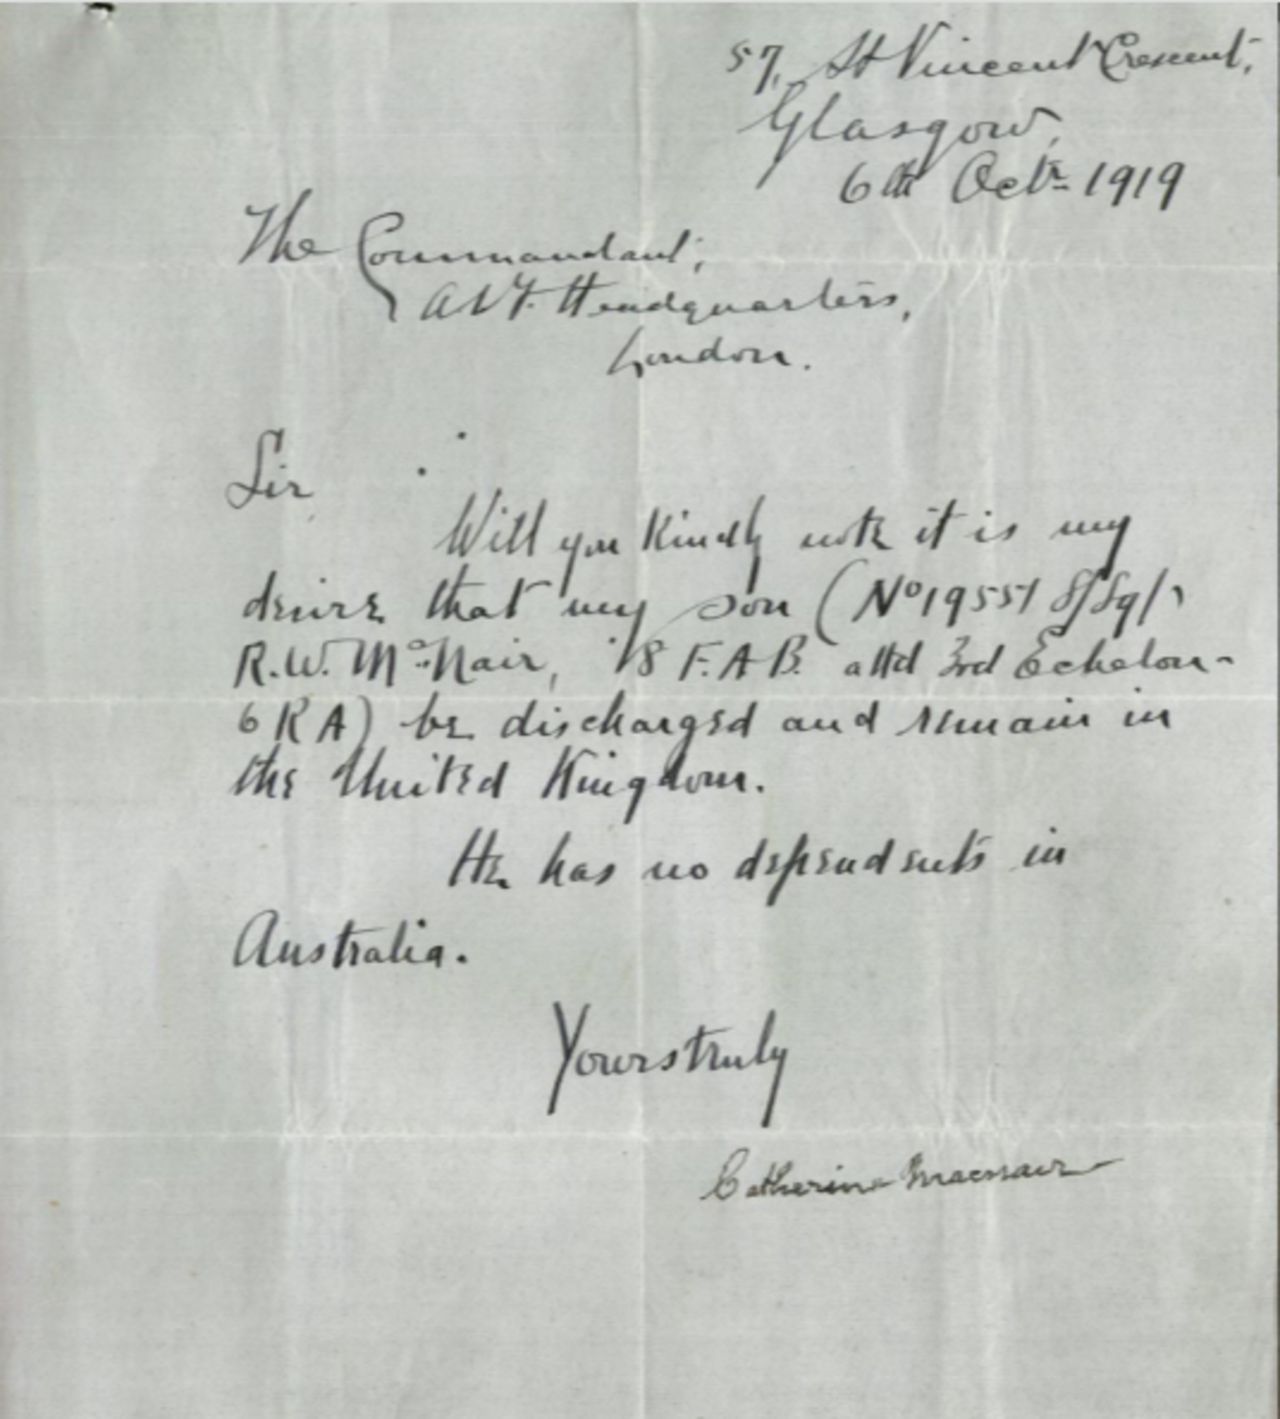 57, St Vincent Crescent,
Glasgow,
6th Octr 1919
The Commandant,
A.I.F. Headquarters,
London.
Sir
Will you kindly note it is my
desire that my son (No 19551 S/Sgt
R.W. McNair, 18 F.A.B. attd 3rd Echelon-
GRA) be discharged and remain in
the United Kingdom.
He has no dependents in
Australia.
Yours truly
Catherine Macnair